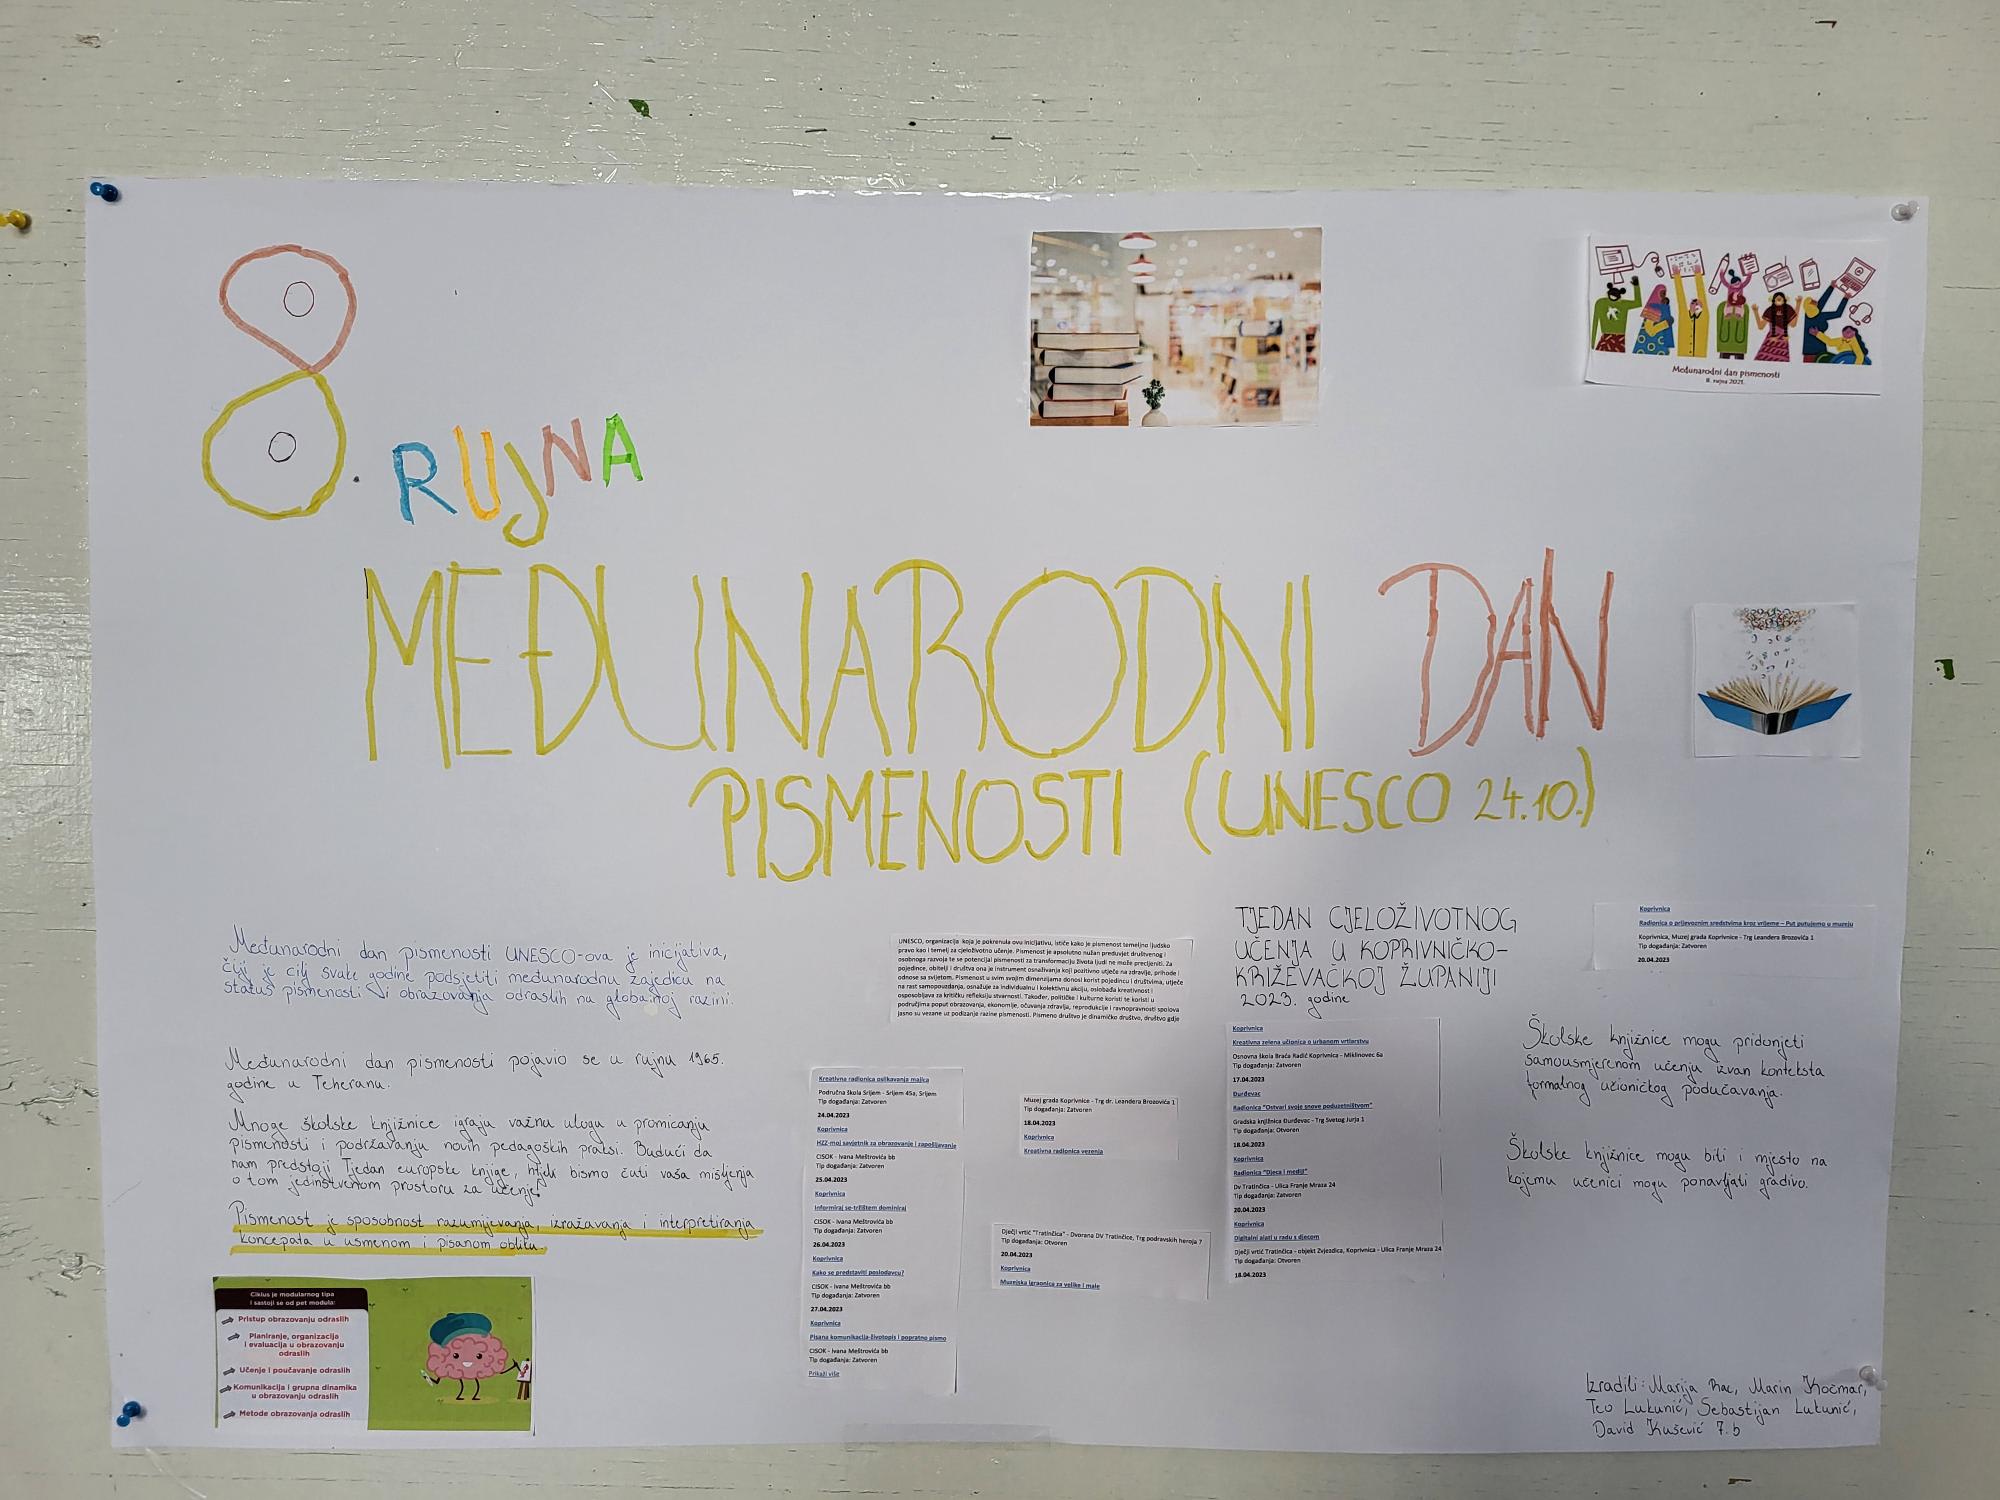 8. RUJNA
MEĐUNARODNI DAN
PISMENOSTI (UNESCO 24.10.)
Međunarodni dan pismenosti
8. rujna 2021.
Međunarodni dan pismenosti UNESCO-ova je inicijativa,
čiji je cilj svake godine podsjetiti međunarodnu zajednicu na
status pismenosti i obrazovanja odraslih na globalnoj razini.
Međunarodni dan pismenosti pojavio se u rujnu 1965.
godine u Teheranu.
Mnoge školske knjižnice igraju važnu ulogu u promicanju
pismenosti i podržavanju novih pedagoških praksi. Budući da
nam predstoji Tjedan europske knjige, htjeli bismo čuti vaša mišljenja
o tom jedinstvenom prostoru za učenje.
Pismenost je sposobnost razumijevanja, izražavanja i interpretiranja
koncepata u usmenom i pisanom obliku.
Ciklus je modularnog tipa
i sastoji se od pet modula:
Pristup obrazovanju odraslih
Planiranje, organizacija
i evaluacija u obrazovanju
odraslih
Učenje i poučavanje odraslih
Komunikacija i grupna dinamika
u obrazovanju odraslih
Metode obrazovanja odraslih
UNESCO, organizacija koja je pokrenula ovu inicijativu, ističe kako je pismenost temeljno ljudsko
pravo kao i temelj za cjeloživotno učenje. Pismenost je apsolutno nužan preduvjet društvenog i
osobnoga razvoja te se potencijal pismenosti za transformaciju života ljudi ne može precijeniti. Za
pojedince, obitelji i društva ona je instrument osnaživanja koji pozitivno utječe na zdravlje, prihode i
odnose sa svijetom. Pismenost u svim svojim dimenzijama donosi korist pojedincu i društvima, utječe
na rast samopouzdanja, osnažuje za individualnu i kolektivnu akciju, oslobađa kreativnost i
osposobljava za kritičku refleksiju stvarnosti. Također, političke i kulturne koristi te koristi u
područjima poput obrazovanja, ekonomije, očuvanja zdravlja, reprodukcije i ravnopravnosti spolova
jasno su vezane uz podizanje razine pismenosti. Pismeno društvo je dinamičko društvo, društvo gdje
Kreativna radionica oslikavanja majica
Područna škola Srijem - Srijem 45a, Srijem
Tip događanja: Zatvoren
24.04.2023
Koprivnica
HZZ-moj savjetnik za obrazovanje i zapošljavanje
CISOK - Ivana Meštrovića bb
Tip događanja: Zatvoren
25.04.2023
Koprivnica
Informiraj se-tržištem dominiraj
CISOK - Ivana Meštrovića bb
Tip događanja: Zatvoren
26.04.2023
Koprivnica
Kako se predstaviti poslodavcu?
CISOK - Ivana Meštrovića bb
Tip događanja: Zatvoren
27.04.2023
Koprivnica
Pisana komunikacija-životopis i popratno pismo
CISOK - Ivana Meštrovića bb
Tip događanja: Zatvoren
Prikaži više
Muzej grada Koprivnice - Trg dr. Leandera Brozovića 1
Tip događanja: Zatvoren
18.04.2023
Koprivnica
Kreativna radionica vezenja
Dječji vrtić "Tratinčica" - Dvorana DV Tratinčice, Trg podravskih heroja 7
Tip događanja: Otvoren
20.04.2023
Koprivnica
Muzejska igraonica za velike i male
TJEDAN CJELOŽIVOTNOG
UČENJA U KOPRIVNIČKO-
KRIŽEVAČKOJ ŽUPANIJI
2023. godine
Koprivnica
Kreativna zelena učionica o urbanom vrtlarstvu
Osnovna škola Braća Radić Koprivnica - Miklinovec 6a
Tip događanja: Zatvoren
17.04.2023
Đurđevac
Radionica "Ostvari svoje snove poduzetništvom"
Gradska knjižnica Đurđevac - Trg Svetog Jurja 1
Tip događanja: Otvoren
18.04.2023
Koprivnica
Radionica "Djeca i mediji"
Dv Tratinčica - Ulica Franje Mraza 24
Tip događanja: Zatvoren
20.04.2023
Koprivnica
Digitalni alati u radu s djecom
Dječji vrtić Tratinčica - objekt Zvjezdica, Koprivnica - Ulica Franje Mraza 24
Tip događanja: Zatvoren
18.04.2023
Koprivnica
Radionica o prijevoznim sredstvima kroz vrijeme – Put putujemo u muzeju
Koprivnica, Muzej grada Koprivnice - Trg Leandera Brozovića 1
Tip događanja: Zatvoren
20.04.2023
Školske knjižnice mogu pridonjeti
samousmjerenom učenju izvan konteksta
formalnog učioničkog podučavanja.
Školske knjižnice mogu biti i mjesto na
kojemu učenici mogu ponavljati gradivo.
Izradili: Marija Rac, Marin Kočmar,
Teo Lukunić, Sebastijan Lukunić,
David Kušević 7.b